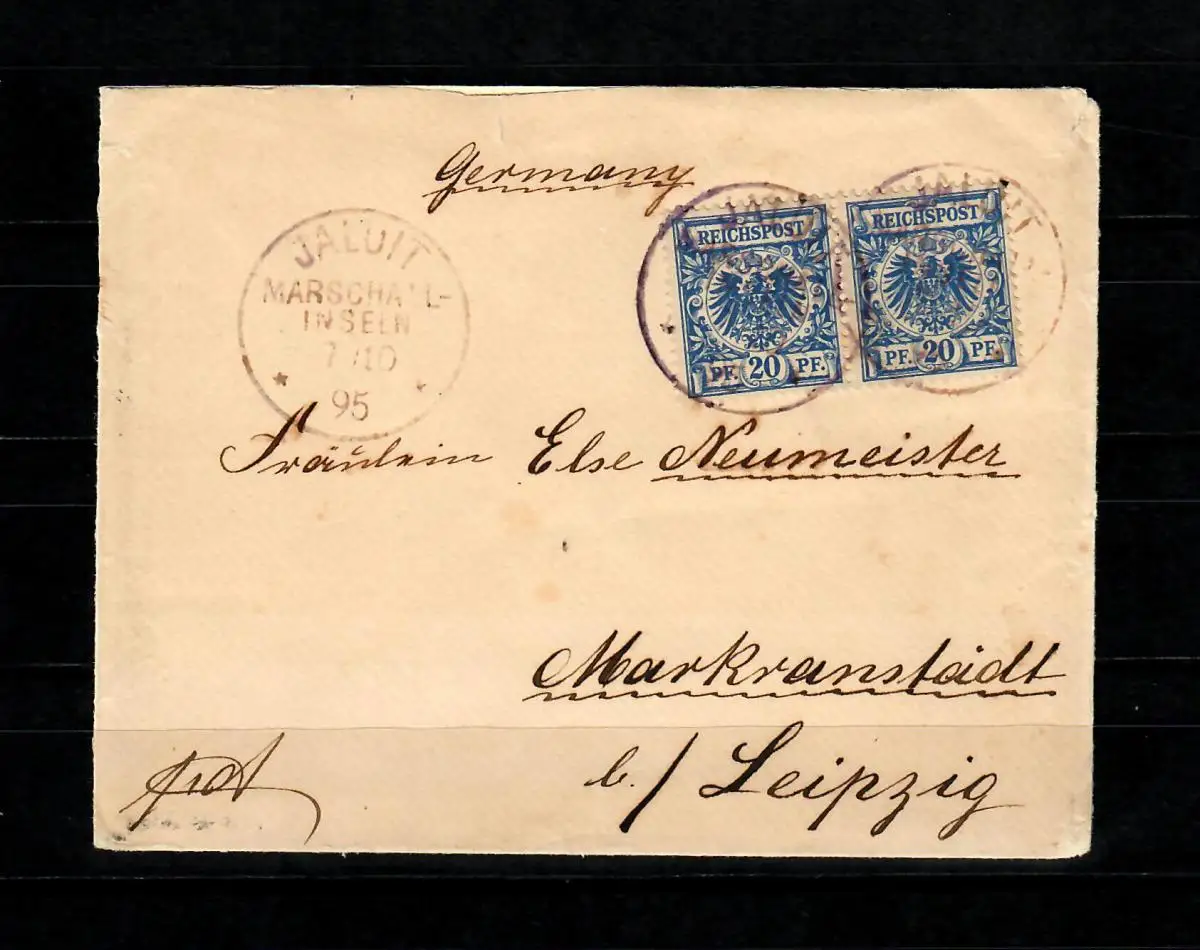 Germany
REICHSPOST
PF. 20 PF.
REICHSPOST
PF. 20 PF.
JALUIT
MARSCHALL-
INSELN
7/10
95
Fräulein Else Neumeister
Markranstädt
b./ Leipzig